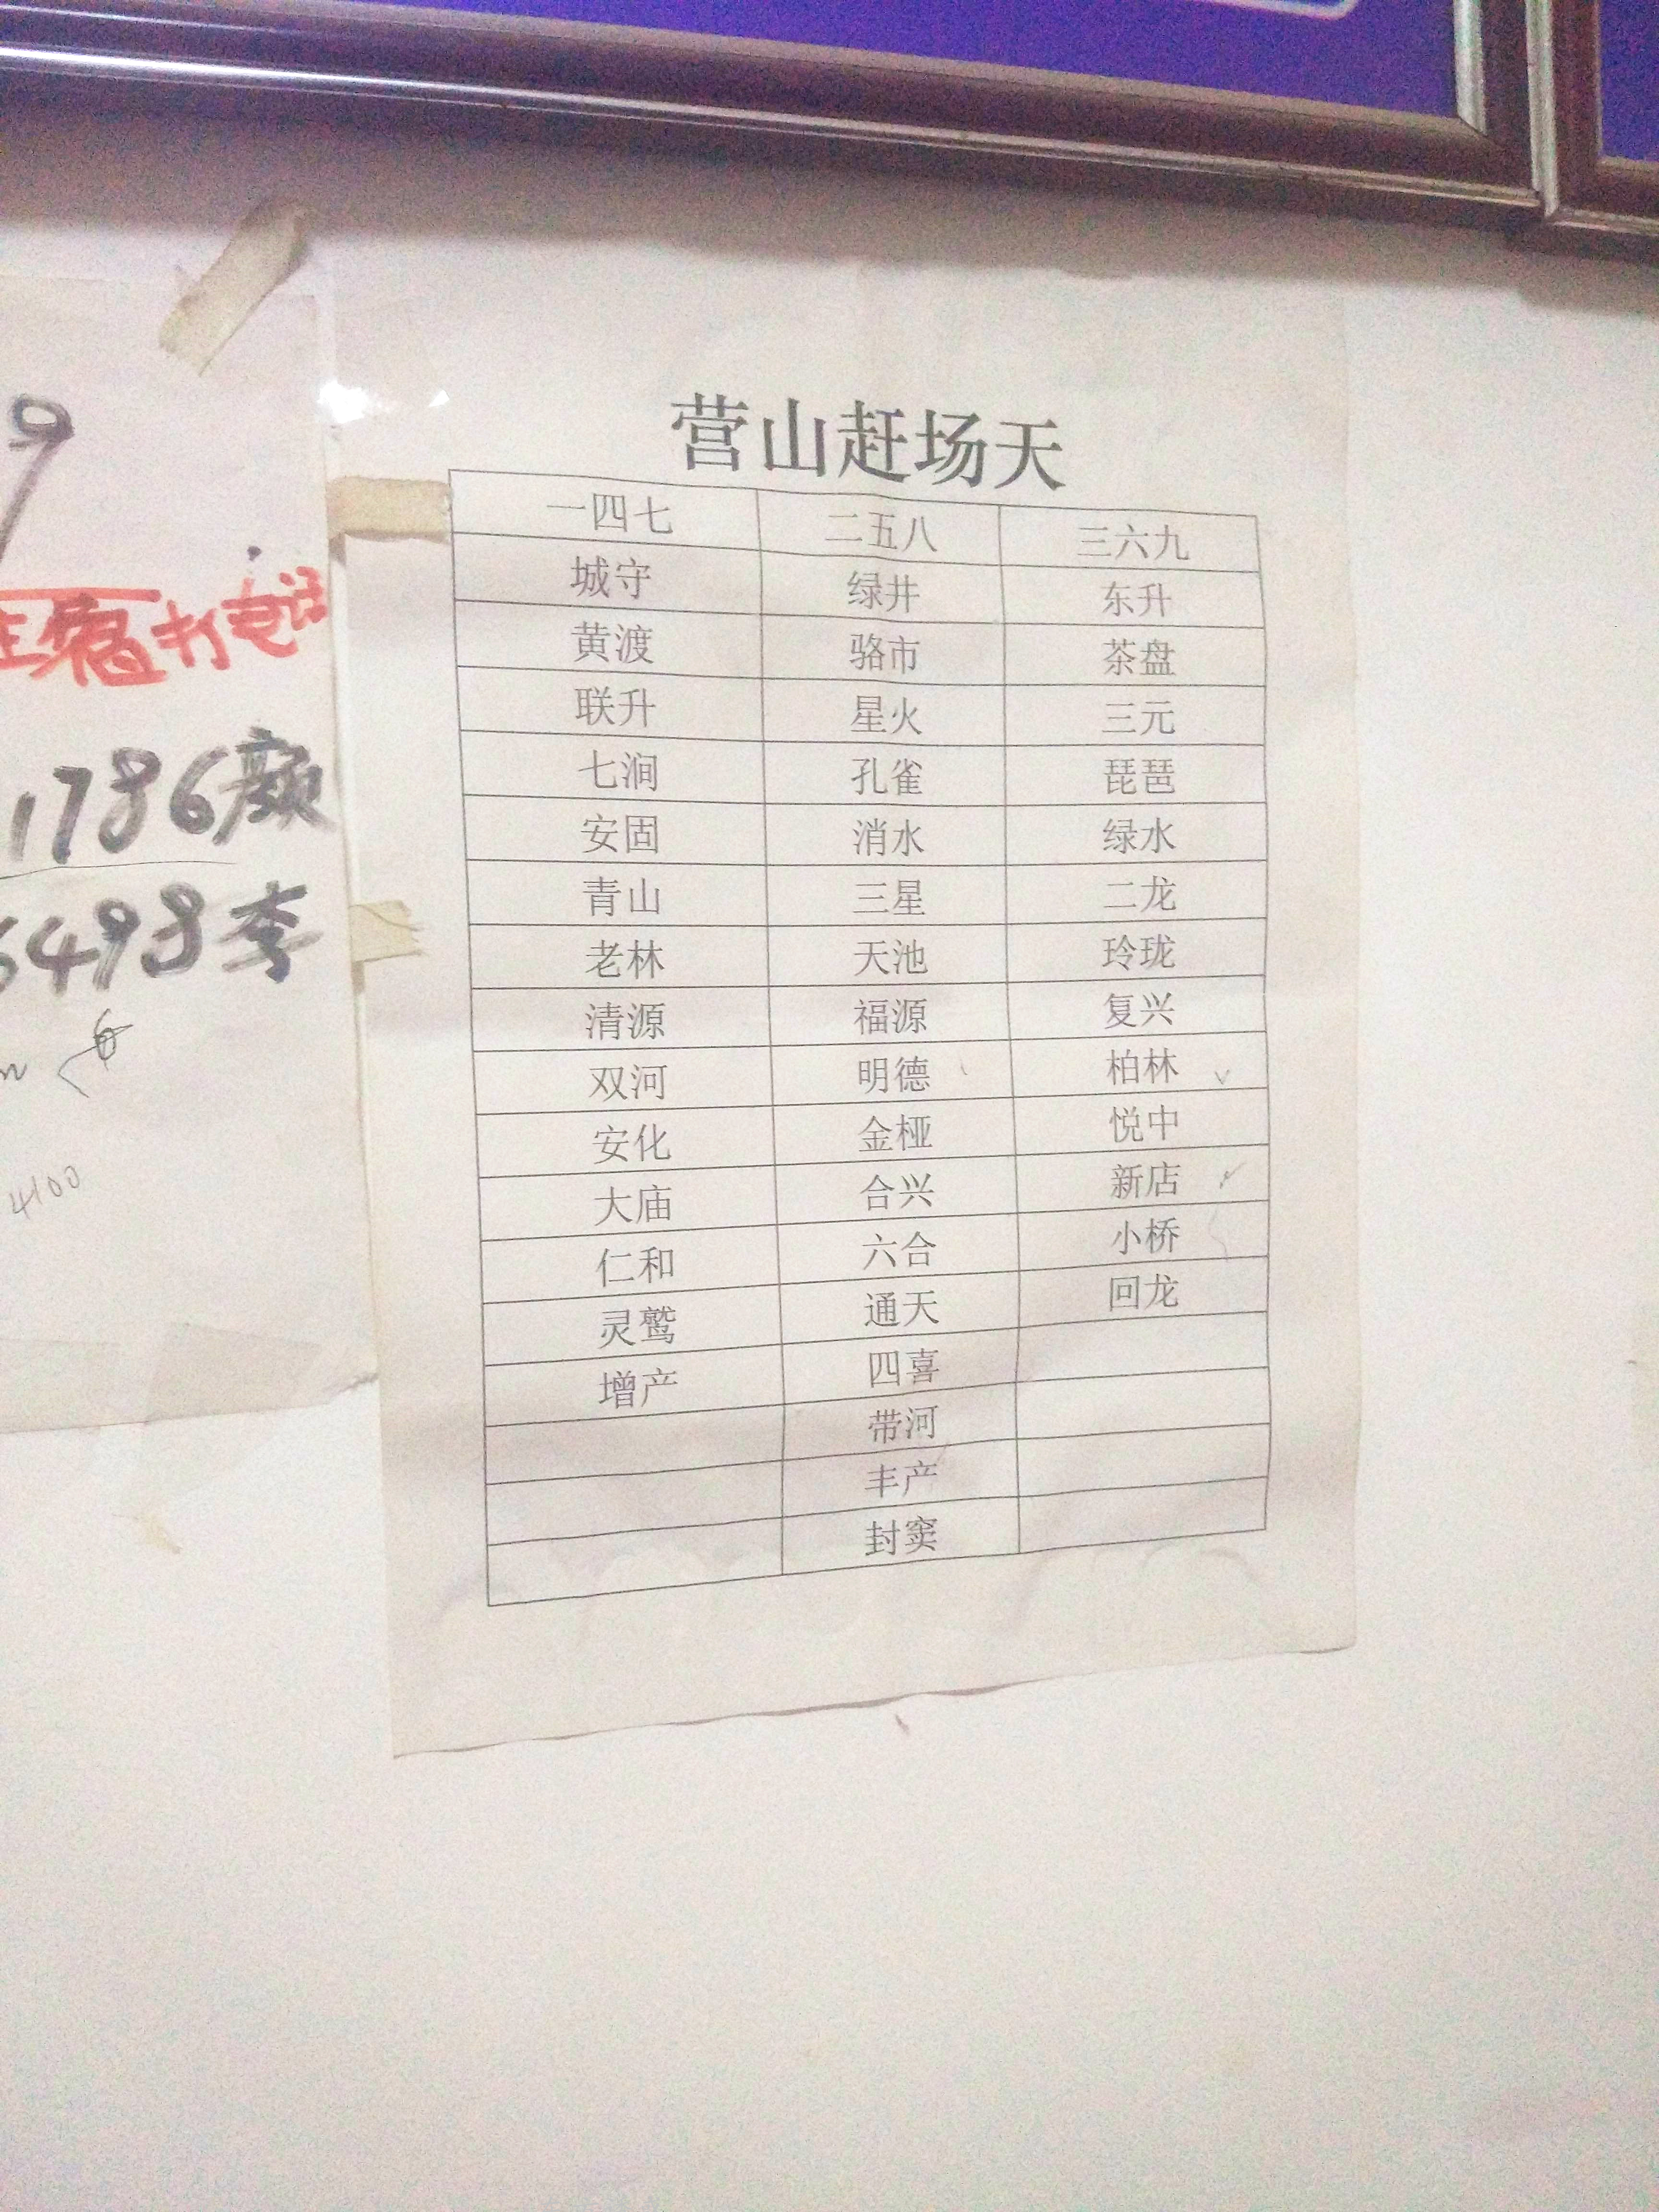 营山赶场天
一四七 二五八 三六九
城守 绿井 东升
黄渡 骆市 茶盘
联升 星火 三元
七涧 孔雀 琵琶
安固 消水 绿水
青山 三星 二龙
老林 天池 玲珑
清源 福源 复兴
双河 明德 柏林
安化 金桠 悦中
大庙 合兴 新店
仁和 六合 小桥
灵鹫 通天 回龙
增产 四喜
带河
丰产
封窦
9
打电话
1786颜
6498李
6
4100